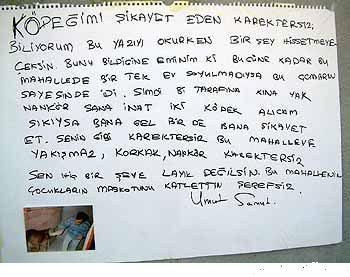 KÖPEĞİMİ ŞİKAYET EDEN KAREKTERSİZ;
BİLİYORUM BU YAZIYI OKURKEN BİR ŞEY HİSSETMEYE-
CEKSİN. BUNU BİLDİĞİNE EMİNİM Kİ BUGÜNE KADAR BU
MAHALLEDE BİR TEK EV SOYULMADIYSA BU ÇOMARIN
SAYESİNDE 'Dİ. ŞİMDİ Bİ TARAFINA KINA YAK
NANKÖR SANA İNAT İKİ KÖPEK ALICAM
SIKIYSA BANA GEL BİR DE BANA ŞİKAYET
ET. SENİN GİBİ KAREKTERSİZ BU MAHALLEYE
YAKIŞMAZ, KORKAK, NANKÖR KAREKTERSİZ
SEN HİÇ BİR ŞEYE LAYIK DEĞİLSİN. BU MAHALLENİN
ÇOCUKLARIN MASKOTUNU KATLETTİN ŞEREFSİZ.
Umut